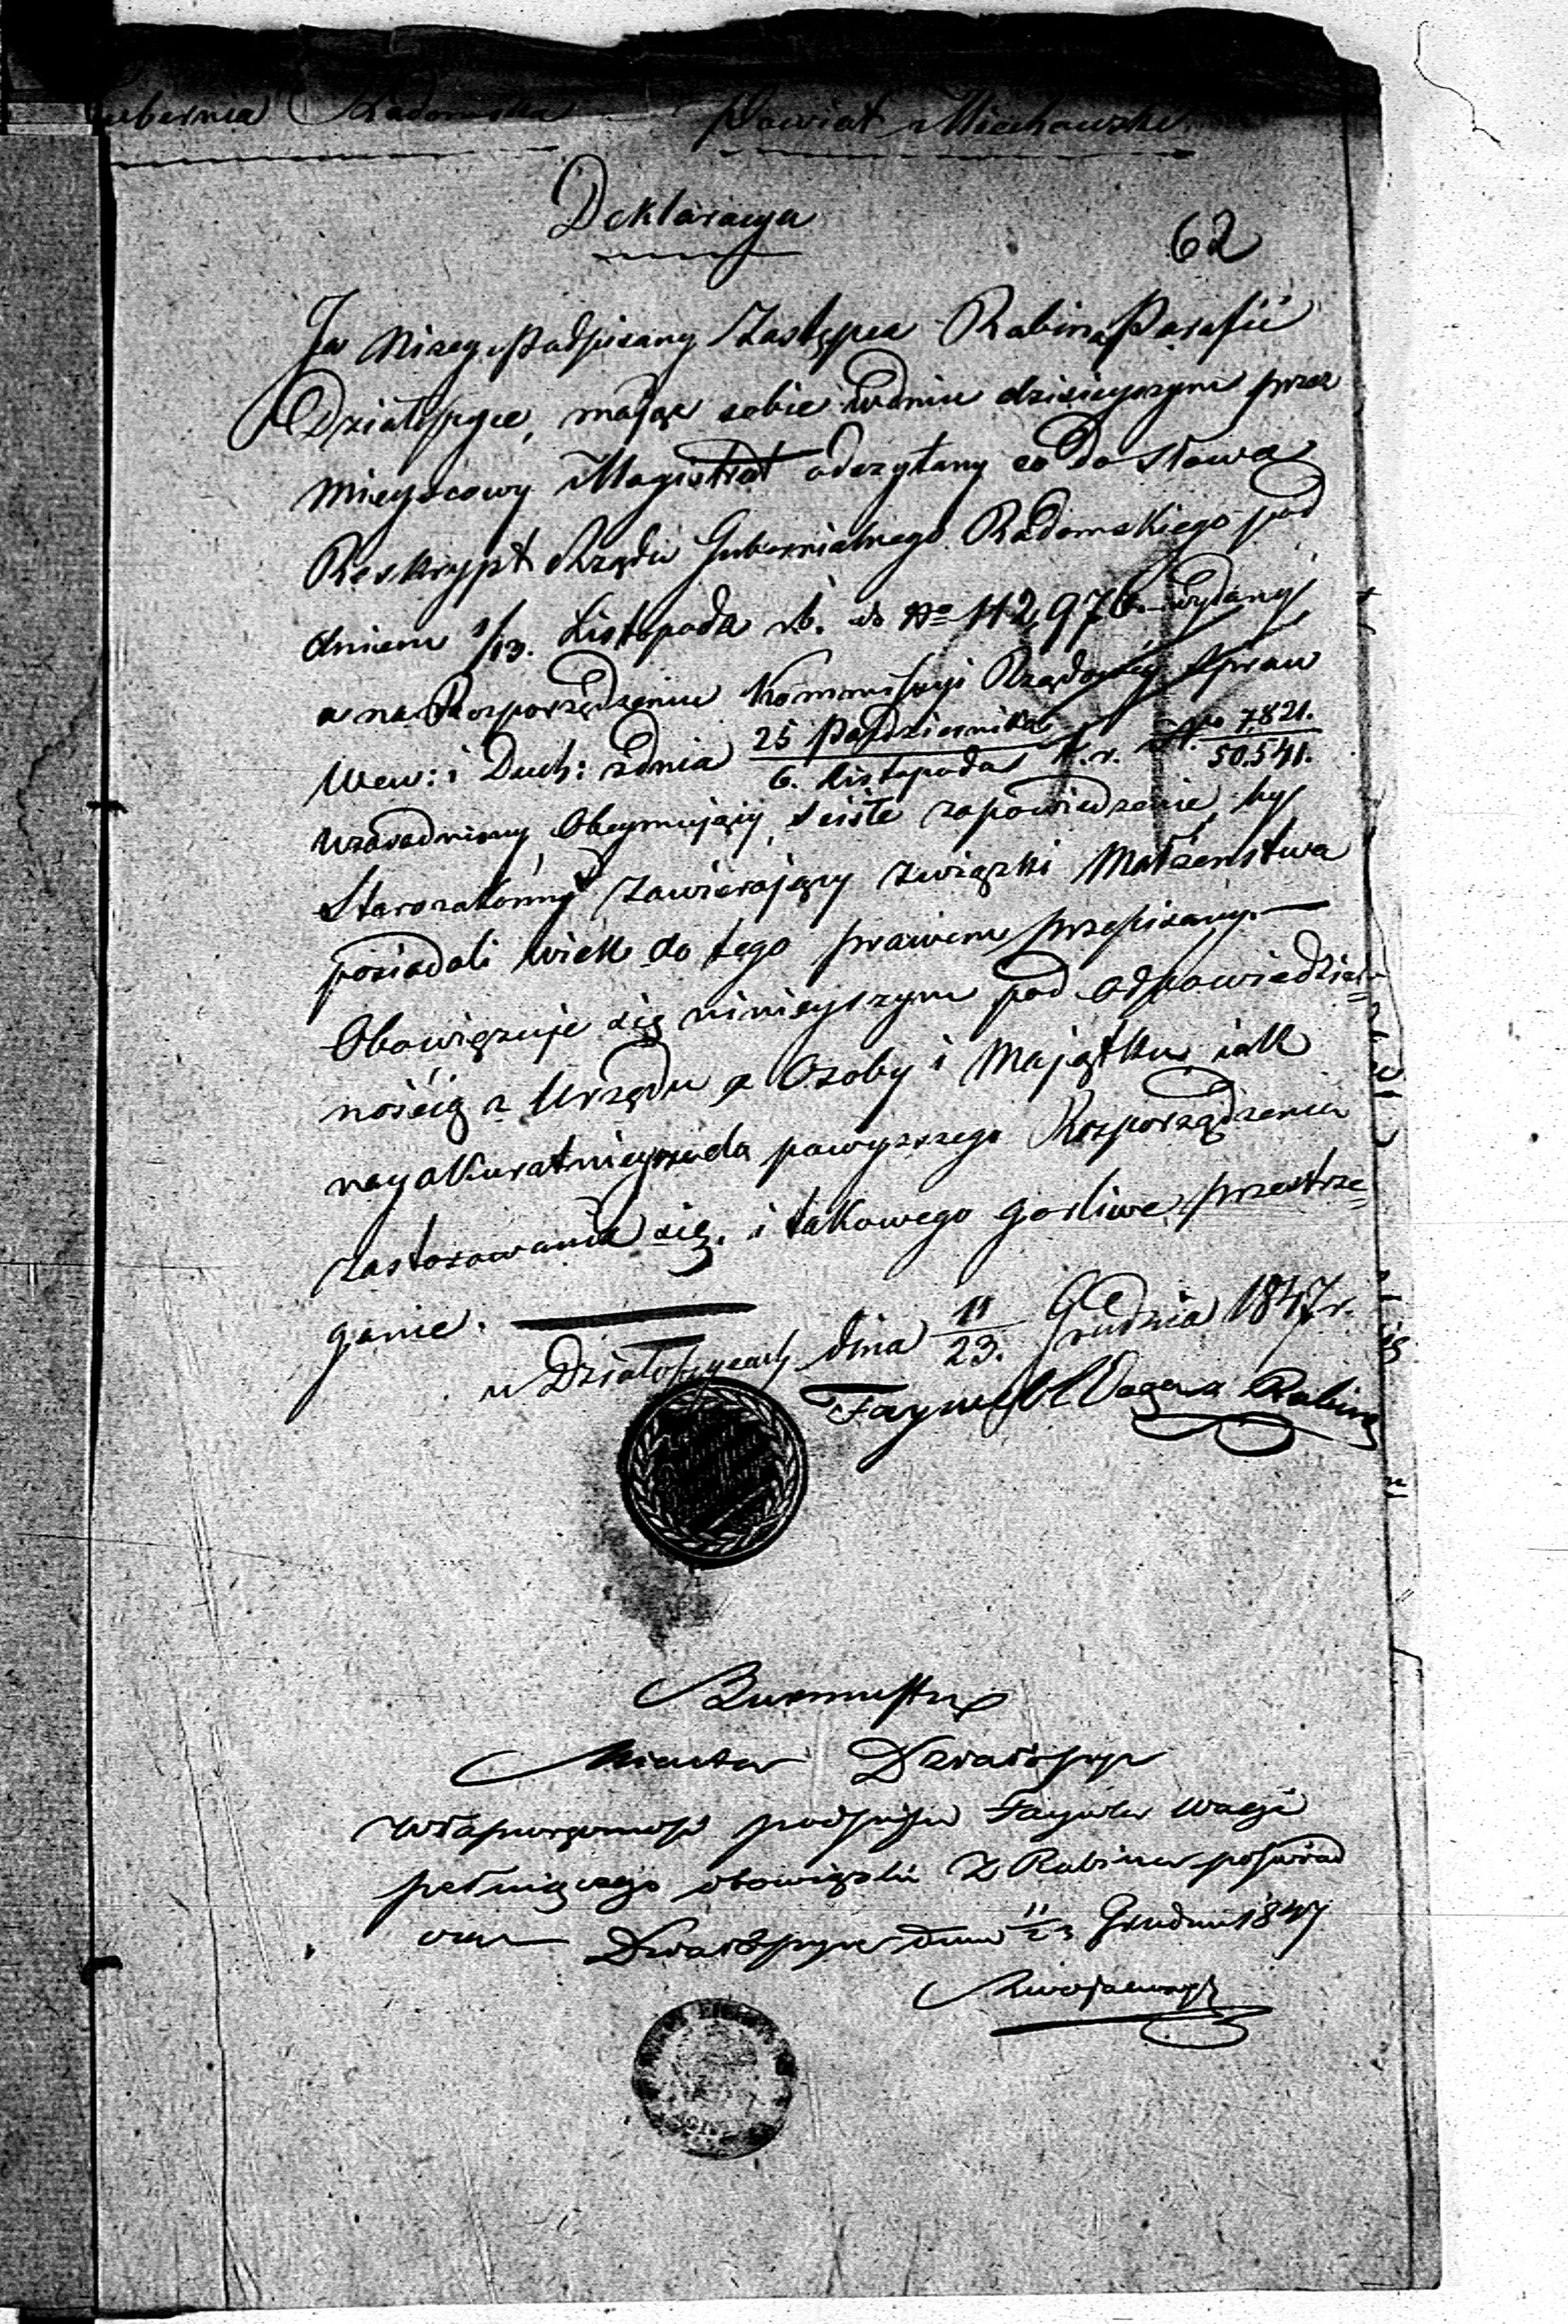 Gubernia Radomska Powiat Miechowski
Deklaracya
62
Ja Nizey Podpisany Zastępca Rabina Parafii
Działoszyce, mając sobie w dniu dzisieyszym przez
Mieyscowy Magistrat odczytany co do słowa
Reskrypt Rządu Gubernialnego Radomskiego pod
dniem 1/13. Listopada rb. No 112,976 wydany
a na Rozporządzeniu Kommissyi Rządowey Spraw
Wew: i Duch: z dnia 25 Października / 6. Listopada t.r. No 7821. / 50.541.
uzasadniony Obeymujący ściśle zapowiedzenie, by
Starozakonny zawierający związki Małżenstwa
posiadali wiek do tego prawem przepisany.—
Obowięzuje się ninieyszym pod odpowiedzial=
nością z Urzędu z Osoby i Majątku, iak
nayakuratnieysze do powyzszego Rozporządzenia
zastosowania się. i takowego gorliwe przestrze=
ganie.
w Działoszycach dnia 11/23. Grudnia 1847 r.
Faywel Waga z Rabina
Burmistrz
Miasta Działoszyc
Własnoręcznosc podpisu Faywla Wagi
pełniącego obowiązki Z Rabina poświad
cza Działoszyce dnia 11/23 Grudnia 1847